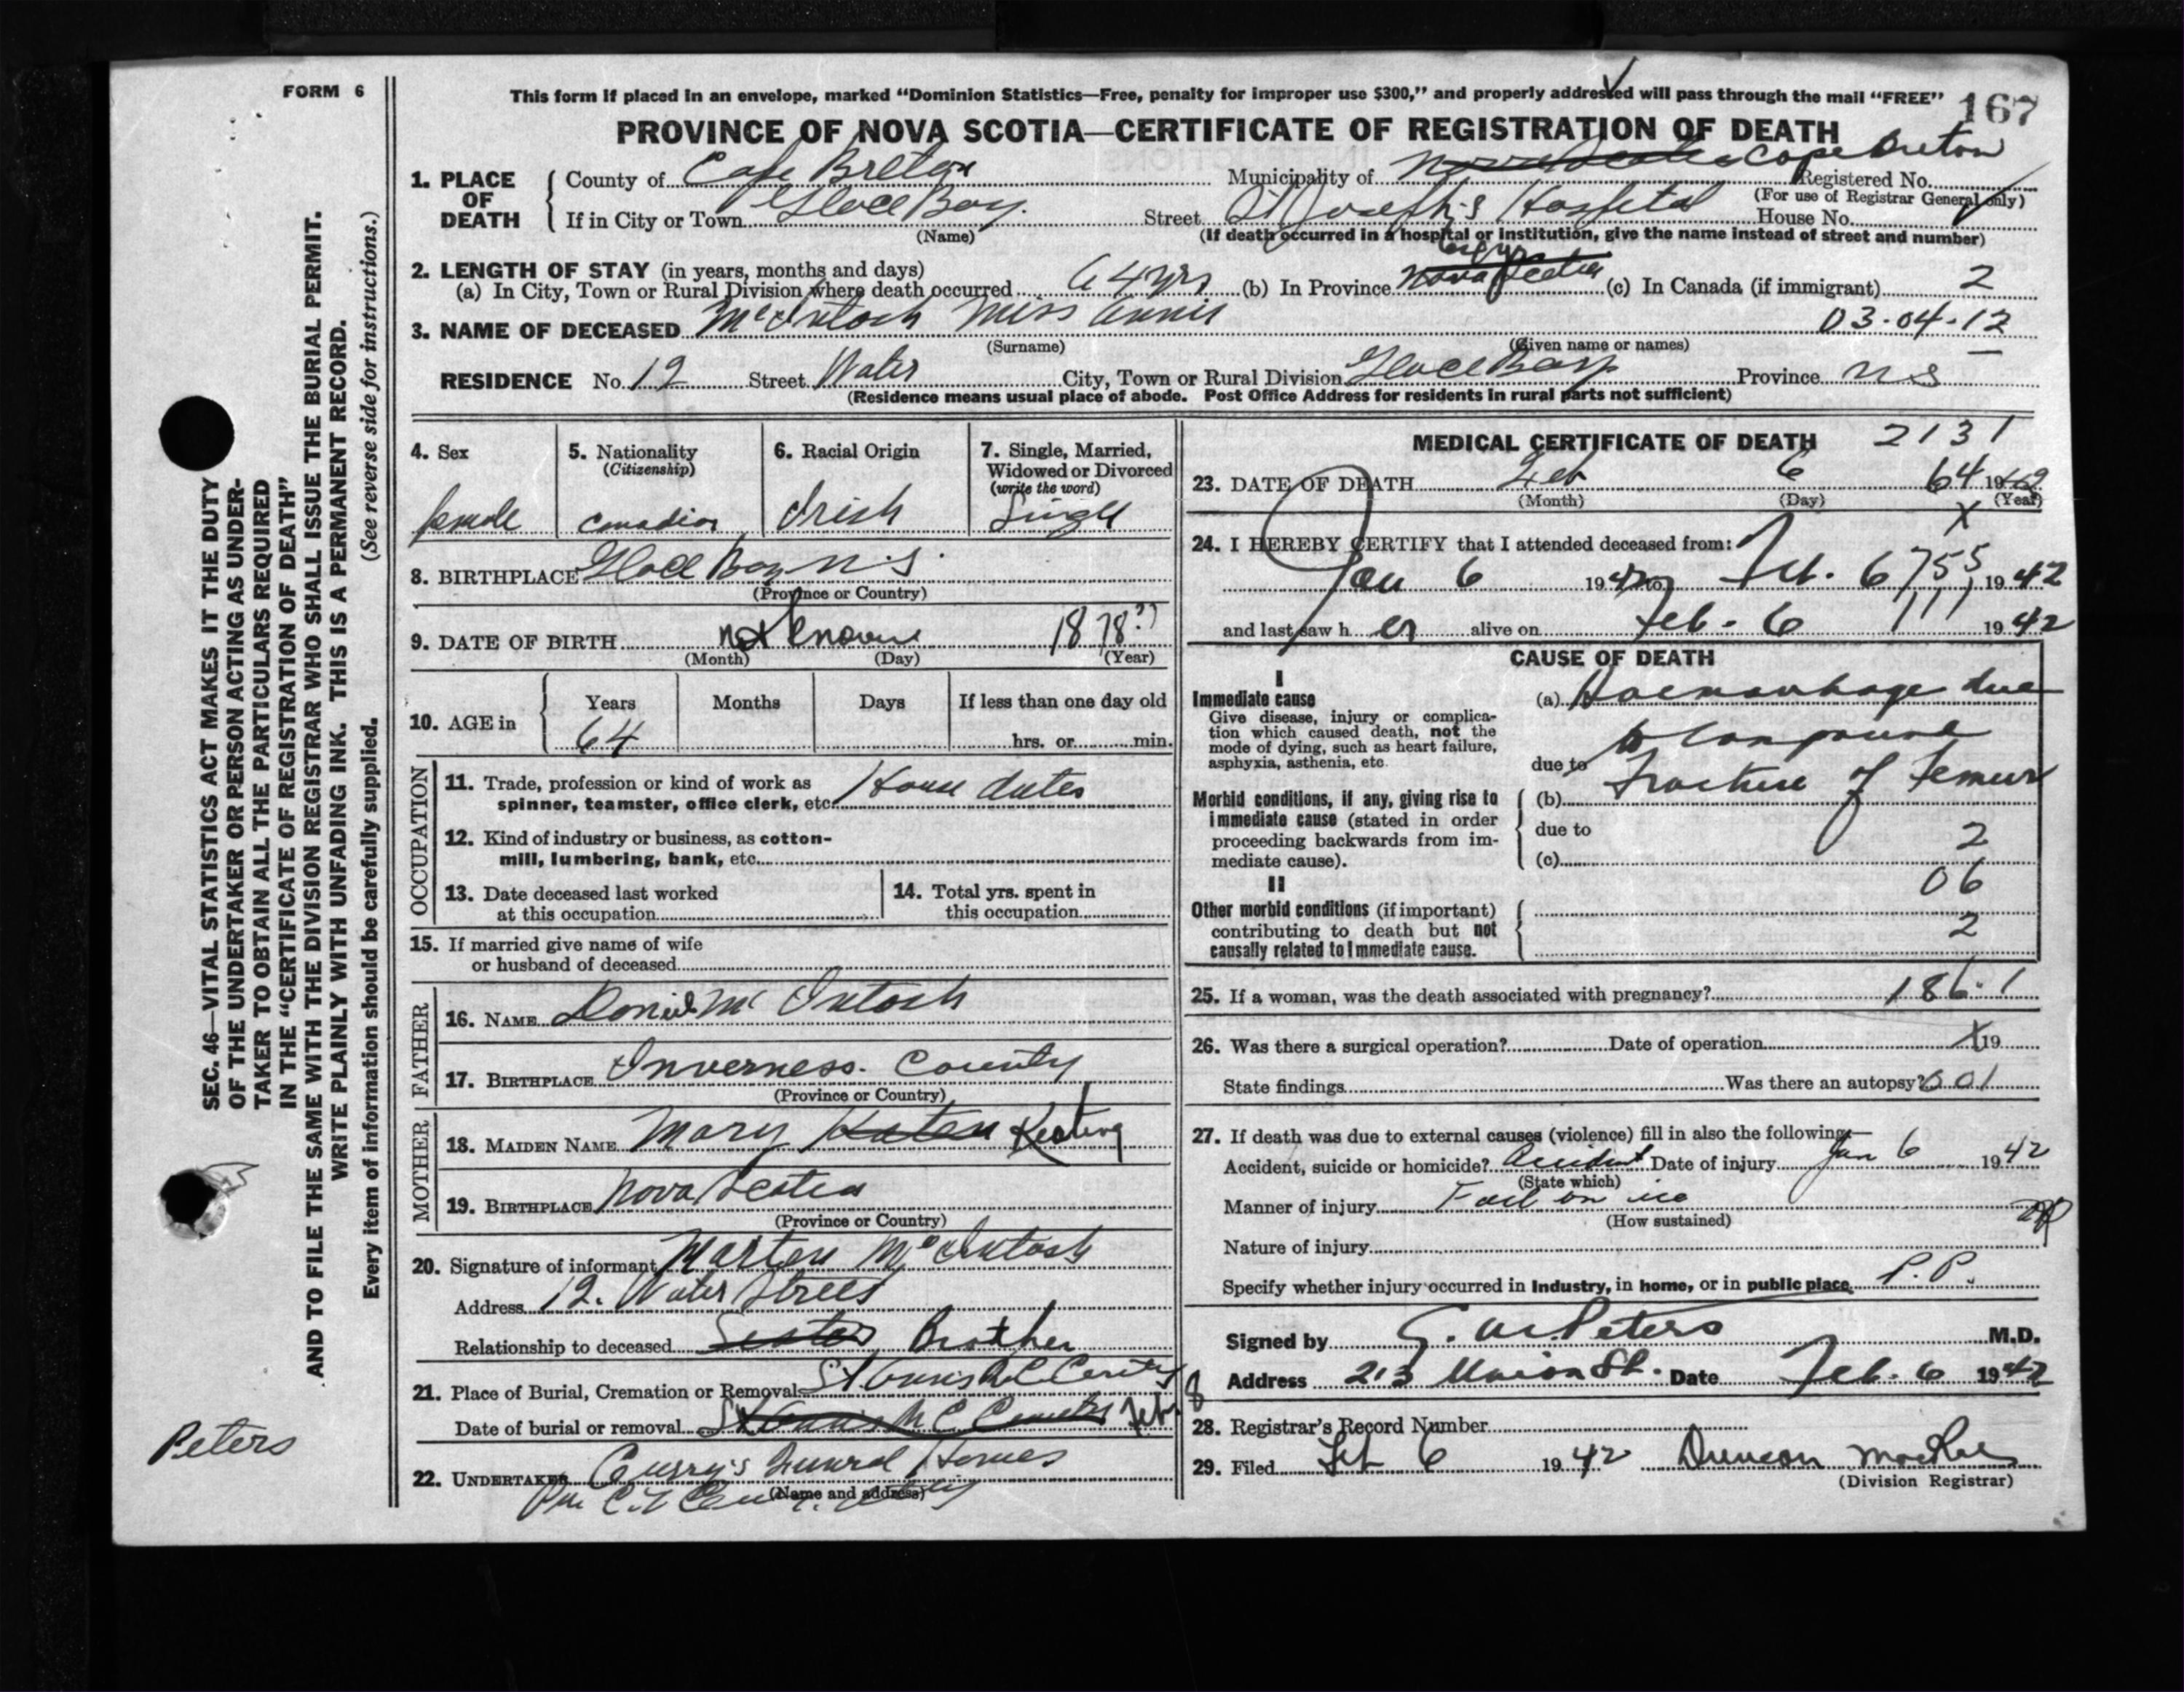 FORM 6
This form if placed in an envelope, marked “Dominion Statistics—Free, penalty for improper use $300,” and properly addressed will pass through the mail “FREE”
167
PROVINCE OF NOVA SCOTIA—CERTIFICATE OF REGISTRATION OF DEATH
1. PLACE OF DEATH
County of Cape Breton Municipality of Nova Scotia Cape Breton Registered No.
(For use of Registrar General only)
If in City or Town Glace Bay. Street St Joseph's Hospital House No.
(Name) (If death occurred in a hospital or institution, give the name instead of street and number)
2. LENGTH OF STAY (in years, months and days)
(a) In City, Town or Rural Division where death occurred 64 yrs (b) In Province Nova Scotia (c) In Canada (if immigrant) 2
3. NAME OF DECEASED McIntosh Miss Annie 03-04-12
(Surname) (Given name or names)
RESIDENCE No. 12 Street Water City, Town or Rural Division Glace Bay Province N S
(Residence means usual place of abode. Post Office Address for residents in rural parts not sufficient)
4. Sex 5. Nationality (Citizenship) 6. Racial Origin 7. Single, Married, Widowed or Divorced (write the word)
female Canadian Irish Single
8. BIRTHPLACE Glace Bay N.S.
(Province or Country)
9. DATE OF BIRTH not known 1878??
(Month) (Day) (Year)
10. AGE in Years Months Days If less than one day old
64 hrs. or min.
OCCUPATION
11. Trade, profession or kind of work as spinner, teamster, office clerk, etc. House duties
12. Kind of industry or business, as cotton-mill, lumbering, bank, etc.
13. Date deceased last worked at this occupation
14. Total yrs. spent in this occupation
15. If married give name of wife or husband of deceased
FATHER
16. NAME Daniel McIntosh
17. BIRTHPLACE Inverness County
(Province or Country)
MOTHER
18. MAIDEN NAME Mary Keating
19. BIRTHPLACE Nova Scotia
(Province or Country)
20. Signature of informant Marten McIntosh
Address 12. Water Street
Relationship to deceased Sister Brother
21. Place of Burial, Cremation or Removal
Date of burial or removal Feb. 8
22. UNDERTAKER Curry's Funeral Homes
(Name and address)
MEDICAL CERTIFICATE OF DEATH 2131
23. DATE OF DEATH Feb 6 64 1942
(Month) (Day) (Year)
X
24. I HEREBY CERTIFY that I attended deceased from:
Jan 6 1942 to Feb. 6 755 1942
and last saw h er alive on Feb. 6 111 1942
CAUSE OF DEATH
I
Immediate cause
Give disease, injury or complication which caused death, not the mode of dying, such as heart failure, asphyxia, asthenia, etc.
(a) Haemorrhage due
to Compound
due to
(b) Fracture of Femur
due to
(c) 2
Morbid conditions, if any, giving rise to immediate cause (stated in order proceeding backwards from immediate cause).
II
06
Other morbid conditions (if important) contributing to death but not causally related to immediate cause.
2
25. If a woman, was the death associated with pregnancy? 186.1
26. Was there a surgical operation? Date of operation X 19
State findings Was there an autopsy? 001
27. If death was due to external causes (violence) fill in also the following:—
Accident, suicide or homicide? Accident Date of injury Jan 6 1942
(State which)
Manner of injury Fall on ice
(How sustained)
Nature of injury
Specify whether injury occurred in Industry, in home, or in public place P.P.
Signed by Peters M.D.
Address 213 Union St. Date Feb. 6 1942
28. Registrar's Record Number
29. Filed Feb 6 1942 Duncan
(Division Registrar)
SEC. 46—VITAL STATISTICS ACT MAKES IT THE DUTY
OF THE UNDERTAKER OR PERSON ACTING AS UNDER-
TAKER TO OBTAIN ALL THE PARTICULARS REQUIRED
IN THE “CERTIFICATE OF REGISTRATION OF DEATH”
AND TO FILE THE SAME WITH THE DIVISION REGISTRAR WHO SHALL ISSUE THE BURIAL PERMIT.
WRITE PLAINLY WITH UNFADING INK. THIS IS A PERMANENT RECORD.
Every item of information should be carefully supplied. (See reverse side for instructions.)
Peters